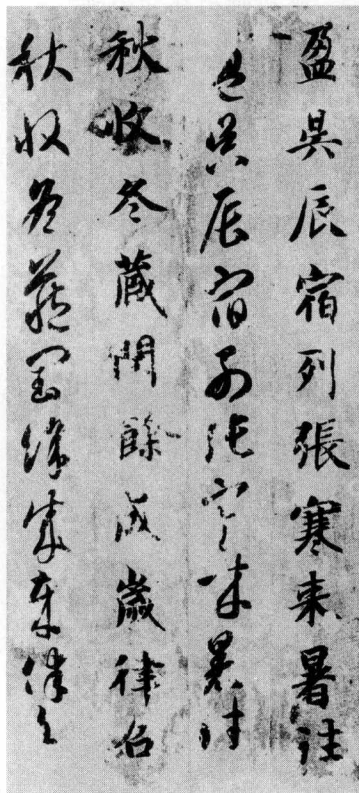 盈昃辰宿列張寒来暑往
盈昃辰宿列張寒来暑往
秋收冬蔵閏餘成歳律召
秋收冬蔵閏餘成歳律召